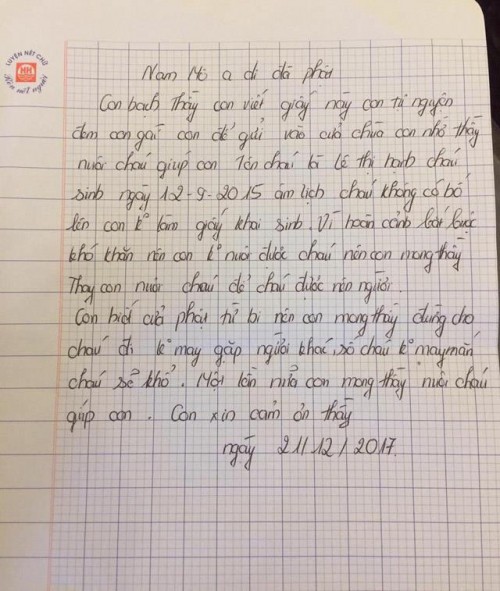 LUYỆN NÉT CHỮ
Rèn nết người
Nam Mô a di đà phật
Con bạch Thầy con viết giấy này con tử nguyện
đem con gái con để gửi vào cửa chùa con nhờ thầy
nuôi cháu giúp con Tên cháu là Lê thị hanh cháu
sinh ngày 12-9-2015 âm lịch cháu không có bố
lên con k° làm giấy khai sinh. Vì hoàn cảnh bắt buộc
khó khăn nên con k° nuôi được cháu nên con mong thầy
Thay con nuôi cháu để cháu được nên người.
Con biết cửa phật từ bi nên con mong thầy đừng cho
cháu đi k° may gặp người khác, số cháu k° may mắn
cháu sẽ khổ. Một lần nữa con mong thầy nuôi cháu
giúp con. Con xin cảm ơn thầy
ngày 21/12/2017.